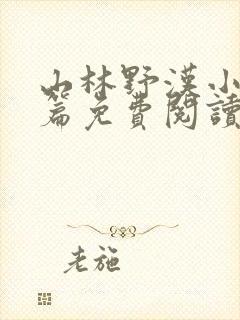 山林野漢小
篇免費閱讀
老施